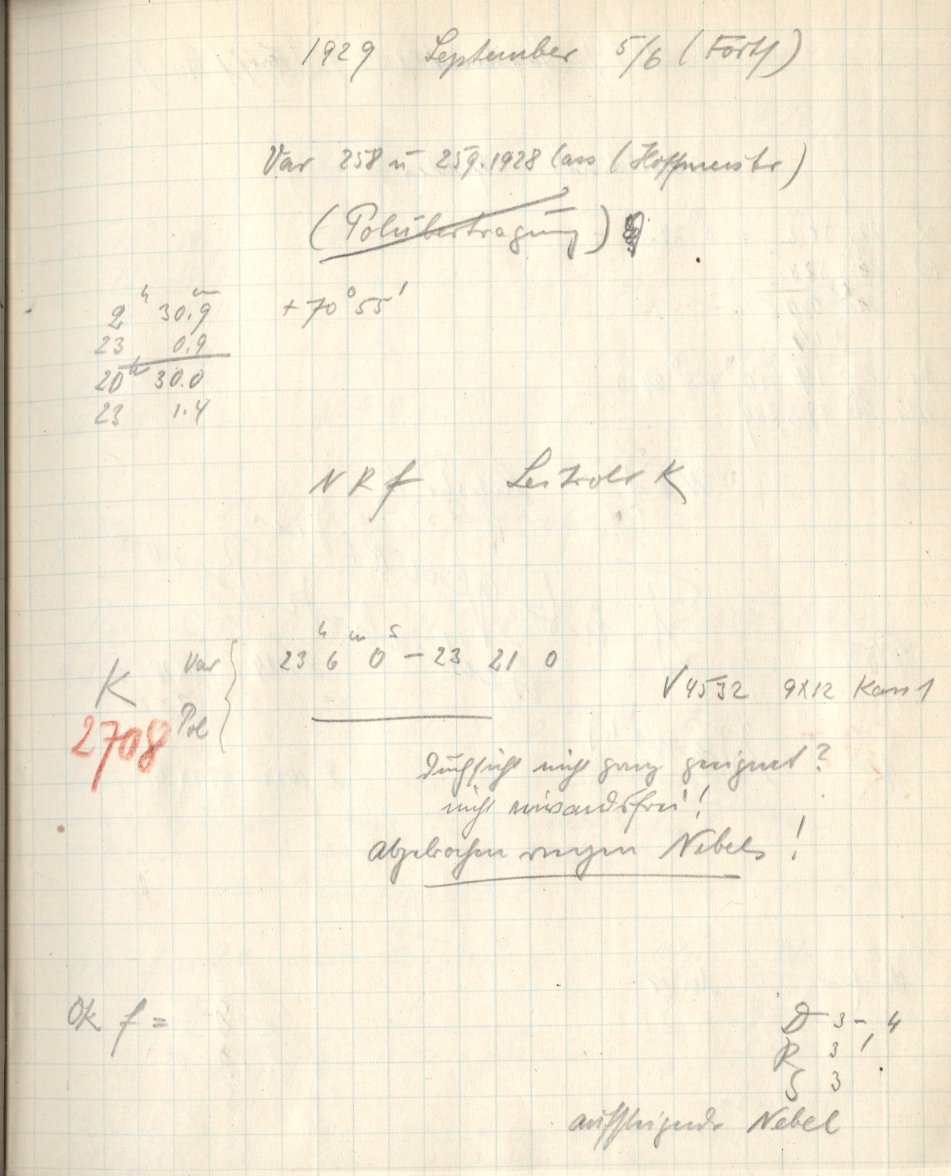 1929 September 5/6 (Forts)
Var 258 u 259.1928 Cass (Hoffmeister)
(Polübertragung)
2h 30.9m +70° 55'
23 0.9
20h 30.0
23 1.4
NRf Leitrohr K
K
Var 23h 6m 0s – 23 21 0
V 4532 9x12 Kass 1
2708
Pol
Durchsicht nicht ganz geeignet?
nicht einwandsfrei!
Abgebrochen wegen Nebels!
Ok f =
D 3–, 4
R 3
S 3
aufsteigender Nebel